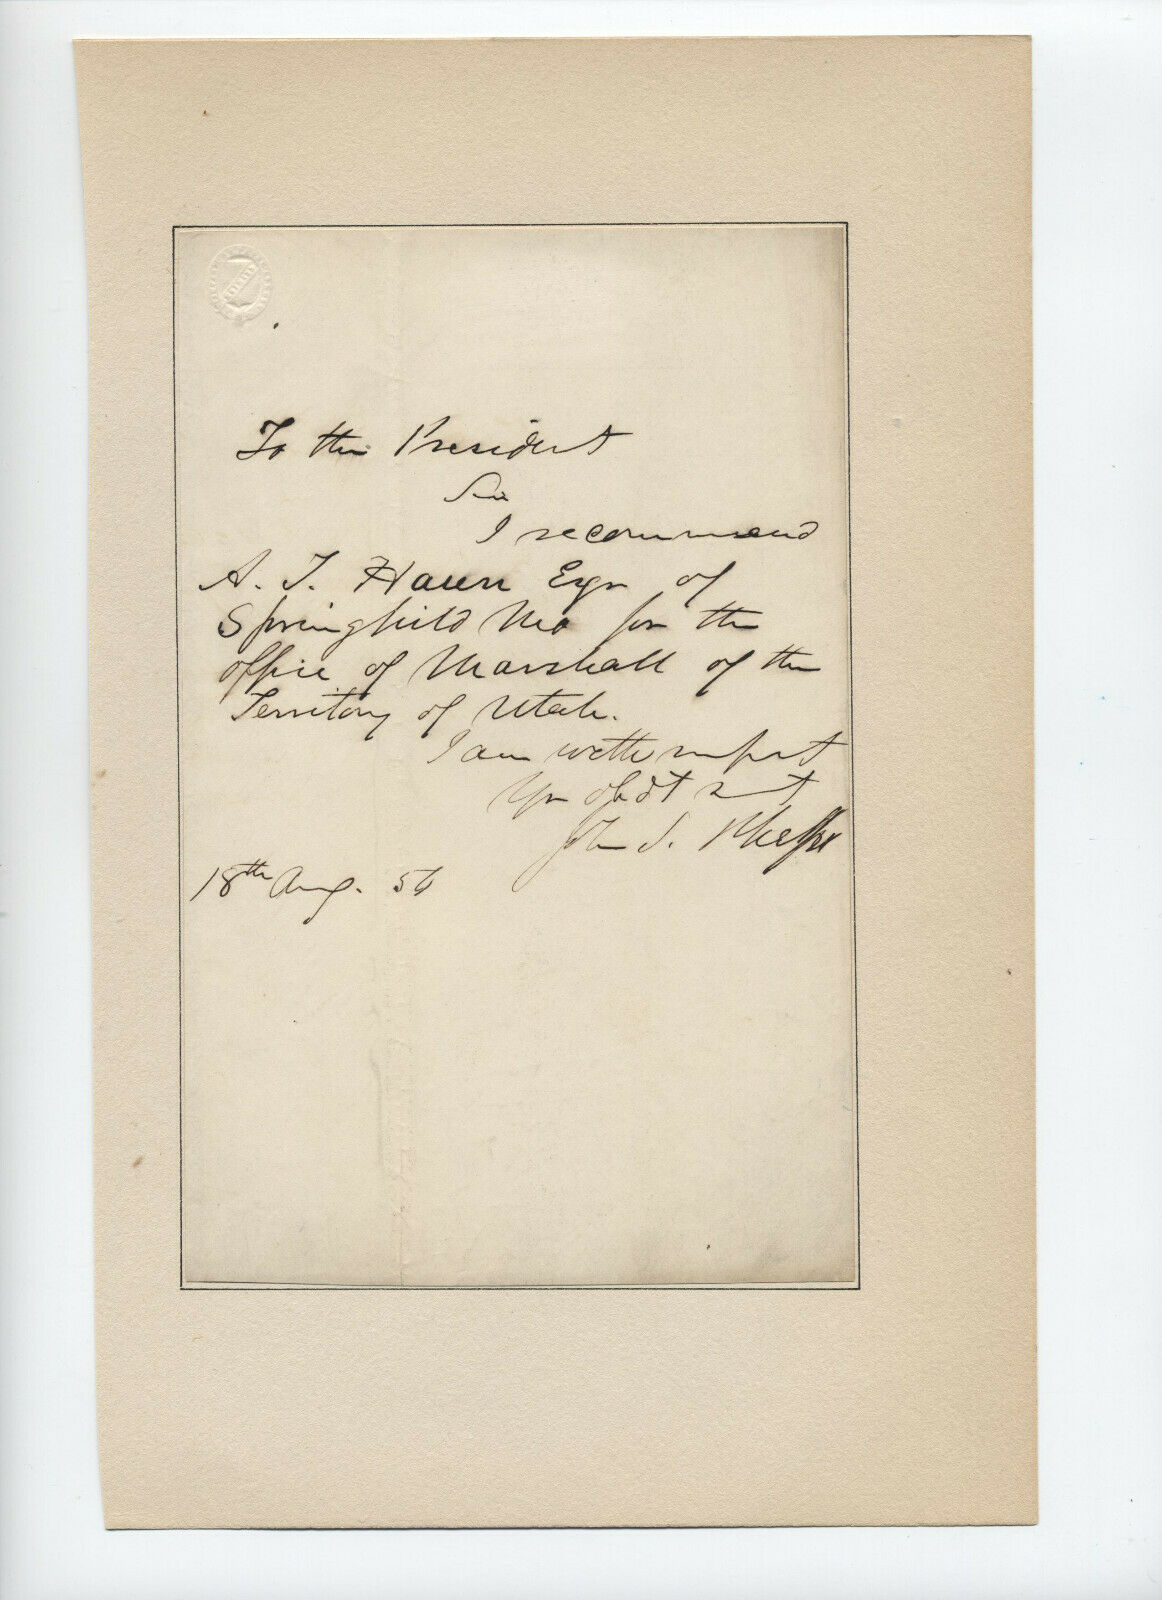 To the President
Sir
I recommend
A. J. Hawn Esqr of
Springfield Mo for the
office of Marshall of the
Territory of Utah.
I am with respect
Yr obdt svt
John S. Phelps
18th Aug. 56